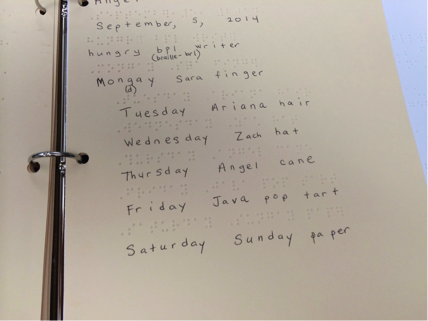 Angel
September, 5, 2014
hungry bpl writer
(braille-wl)
Mongay Sara finger
(d)
Tuesday Ariana hair
Wednesday Zach hat
Thursday Angel cane
Friday Java pop tart
Saturday Sunday paper